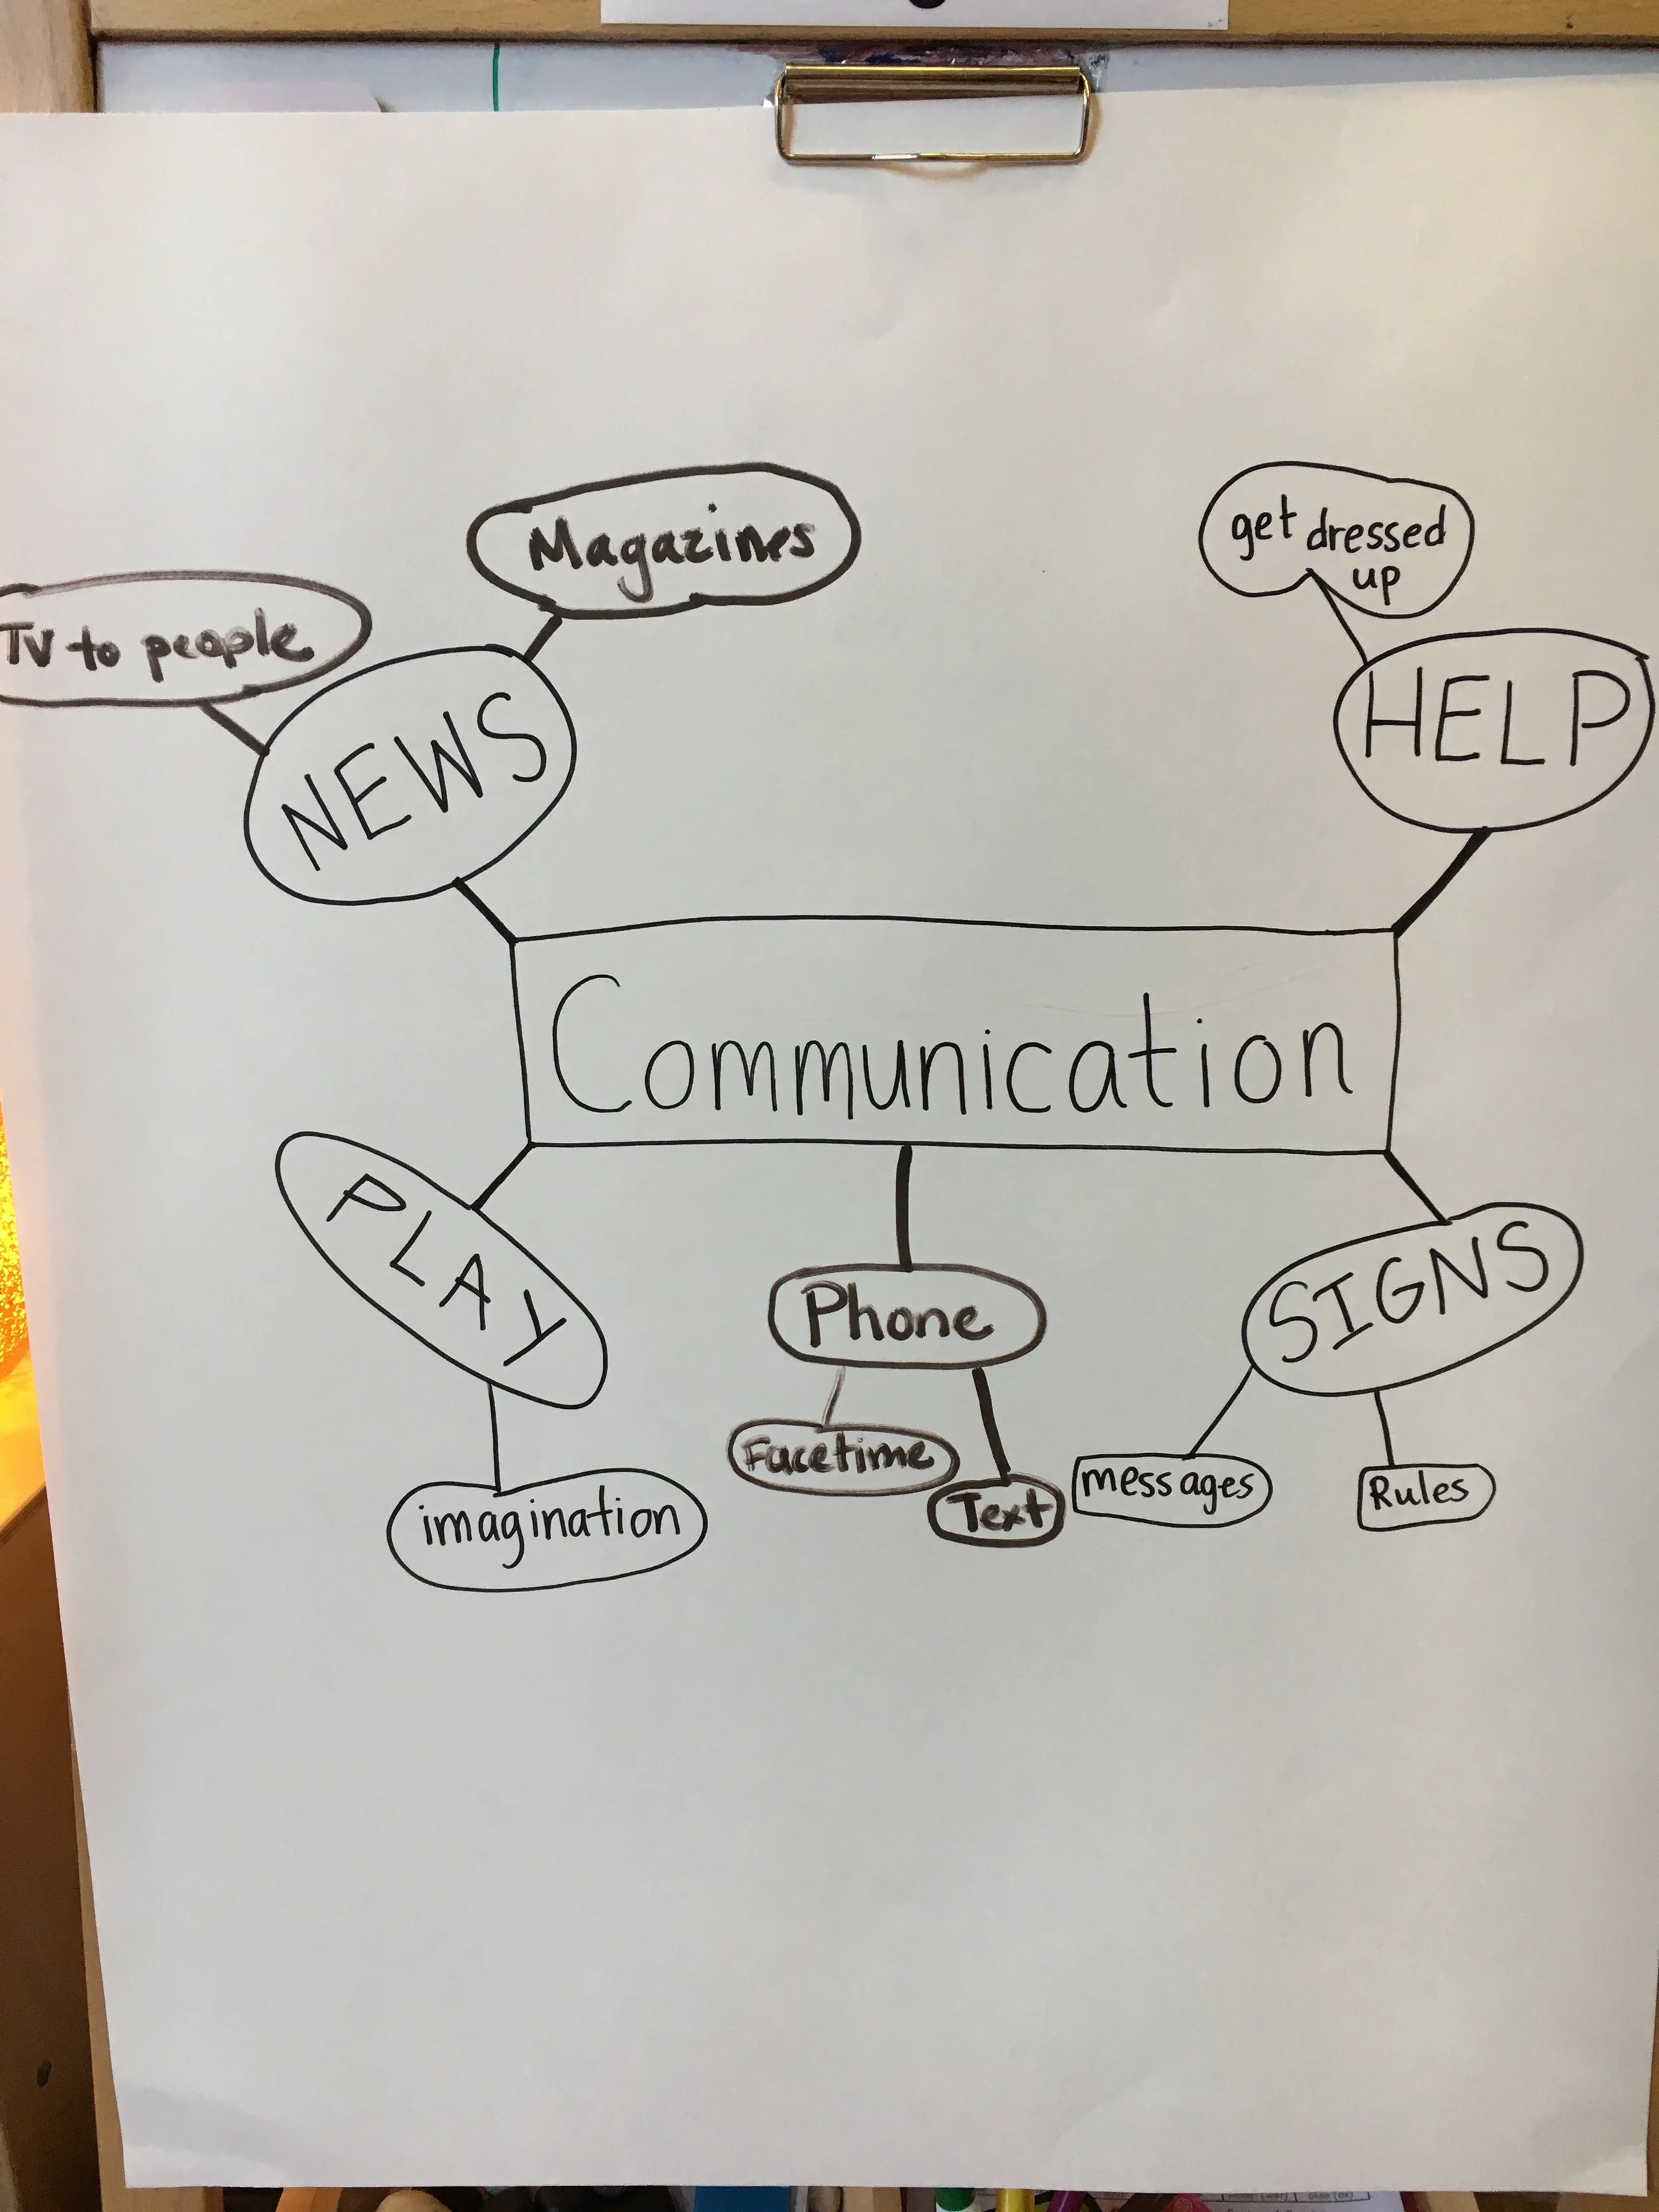 Magazines
get dressed
up
TV to people
NEWS
HELP
Communication
PLAY
Phone
SIGNS
Facetime
Text
messages
Rules
imagination